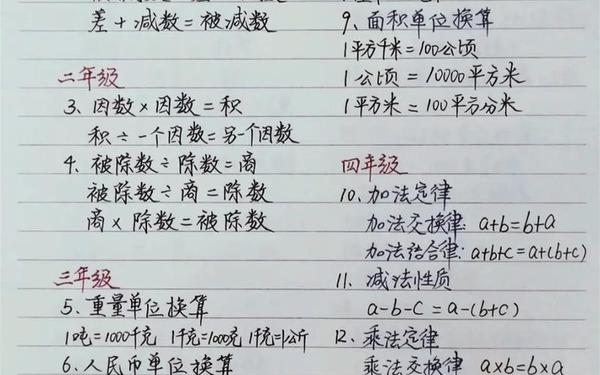 差+减数=被减数
二年级
3、因数×因数=积
积÷一个因数=另一个因数
4、被除数÷除数=商
被除数÷商=除数
商×除数=被除数
三年级
5、重量单位换算
1吨=1000千克 1千克=1000克 1千克=1公斤
6、人民币单位换算
9、面积单位换算
1平方千米=100公顷
1公顷=10000平方米
1平方米=100平方分米
四年级
10、加法定律
加法交换律:a+b=b+a
加法结合律:a+b+c=a+(b+c)
11、减法性质
a-b-c=a-(b+c)
12、乘法定律
乘法交换律 a×b=b×a